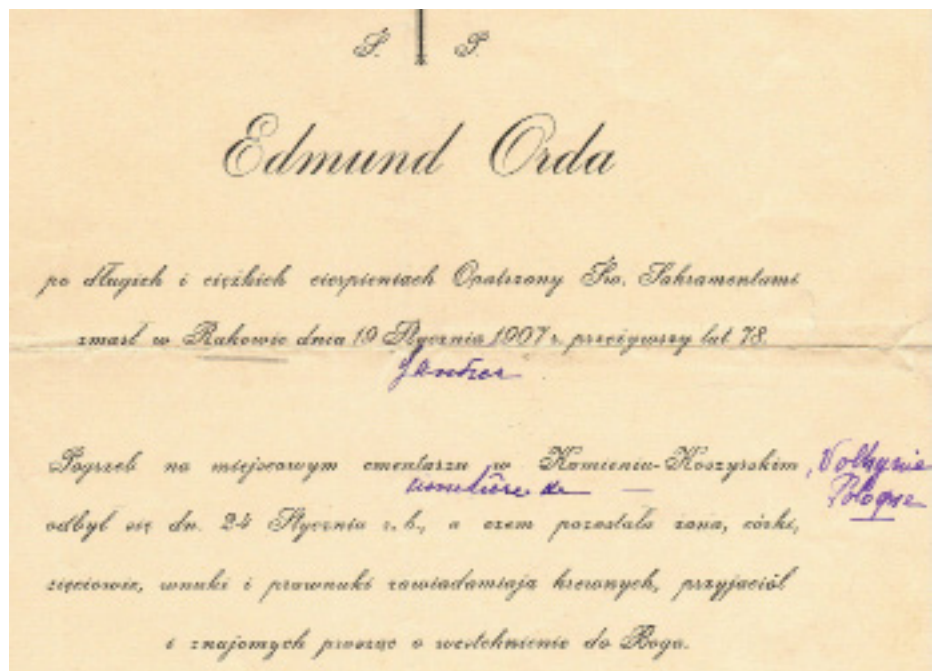 Ś. P.
Edmund Orda
po długich i ciężkich cierpieniach Opatrzony Św. Sakramentami
zmarł w Rakowie dnia 19 Stycznia 1907 r. przeżywszy lat 78.
Janvier
Pogrzeb na miejscowym cmentarzu w Kamieniu-Koszyrskim, Volhynie
cimetière de — Pologne
odbył się dn. 24 Stycznia r. b., o czem pozostała żona, córki,
zięciowie, wnuki i prawnuki zawiadamiają krewnych, przyjaciół
i znajomych prosząc o westchnienie do Boga.